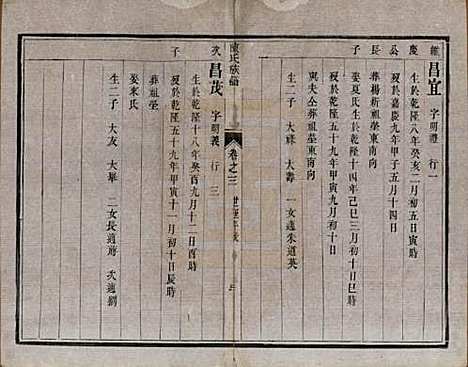 維 昌宜 字明禮 行一
慶 生於乾隆八年癸亥二月初五日寅時
公 歿於嘉慶九年甲子五月十四日
長 葬楊新塋東南向
子 娶夏氏生於乾隆十四年己巳三月初十日
歿於乾隆五十九年甲寅九月初十日
與夫仝葬祖塋東南向
生二子 大祿 大壽 一女適朱道英
陳氏族譜
卷之三
次 昌茂 字明義 行三
生於乾隆十八年癸酉九月十二日酉時
子 歿於乾隆五十九年甲寅十一月初十日辰時
葬祖塋
娶來氏
生二子 大友 大畢 二女長適蔣 次適劉